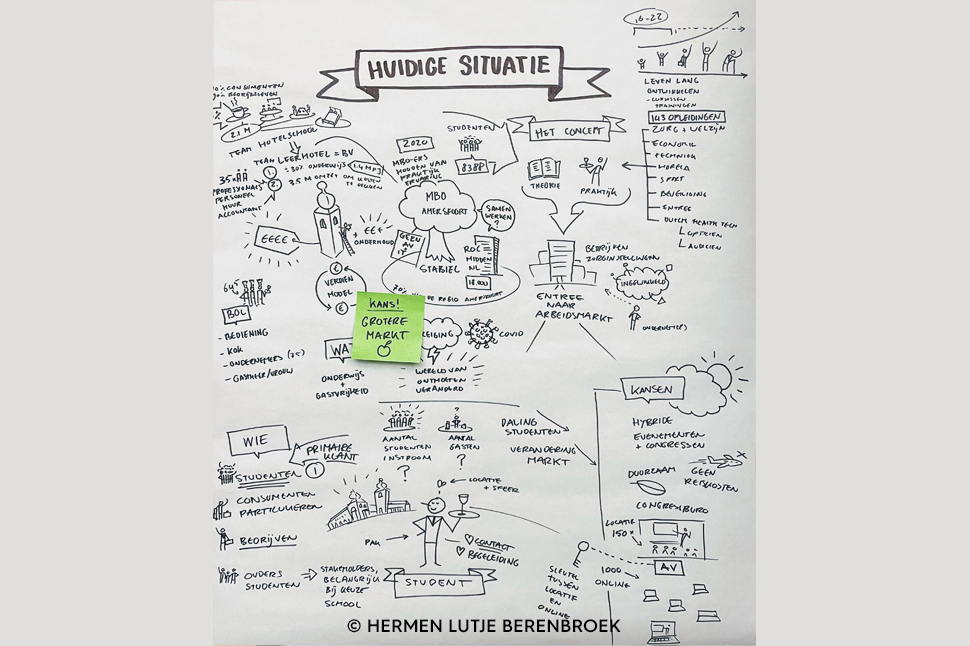 HUIDIGE SITUATIE
16-22
LEVEN LANG
ONTWIKKELEN
- CURSUSSEN
TRAININGEN
143 OPLEIDINGEN
ZORG + WELZIJN
ECONOMIE
TECHNIEK
HORECA
SPORT
BEVEILIGING
ENTREE
DUTCH HEALTH TECH
OPTICIEN
AUDICIEN
CONSUMENTEN
2.1 M
TEAM HOTELSCHOOL
TEAM LEERHOTEL = BV
= 30% ONDERWIJS
1.4 M
3.5 M OMZET OM KOSTEN
TE DEKKEN
35
1.
2.
PROFESSIONALS
PERSONEEL
HUUR
ACCOUNTANT
€€€€
+ €€€
ONDERHOUD
2020
MBO-ERS
HOUDEN VAN
PRAKTIJK
ERVARING
STUDENTEN
8388
MBO
AMERSFOORT
GEEN
SAMEN
WERKEN
?
ROC
MIDDEN
NL
18.000
STABIEL
70%
DE REGIO AMERSFOORT
HET CONCEPT
THEORIE
PRAKTIJK
BEDRIJVEN
ZORGINSTELLINGEN
INGEWIKKELD
ONDERNEMERS
ENTREE
NAAR
ARBEIDSMARKT
€
VERDIEN
MODEL
€
KANS!
GROTERE
MARKT
WAT
ONDERWIJS
+
GASTVRIJHEID
REIGING
COVID
WERELD VAN
ONTMOETEN
VERANDERD
BOL
- BEDIENING
- KOK
- ONDERNEMERS
- GASTHEER/VROUW
WIE
PRIMAIRE
KLANT
STUDENTEN 1
CONSUMENTEN
PARTICULIEREN
BEDRIJVEN
OUDERS
STUDENTEN
STAKEHOLDERS,
BELANGRIJK
BIJ KEUZE
SCHOOL
AANTAL
STUDENTEN
INSTROOM
?
?
AANTAL
GASTEN
?
DALING
STUDENTEN
VERANDERING
MARKT
LOCATIE
+ SFEER
PAK
CONTACT
BEGELEIDING
STUDENT
KANSEN
HYBRIDE
EVENEMENTEN
+ CONGRESSEN
DUURZAAM
GEEN
REISKOSTEN
CONGRESBURO
LOCATIE
150
AV
1000
ONLINE
SLEUTEL
TUSSEN
LOCATIE
EN
ONLINE
© HERMEN LUTJE BERENBROEK